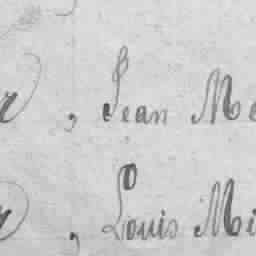 , Jean Me
, Louis Mi